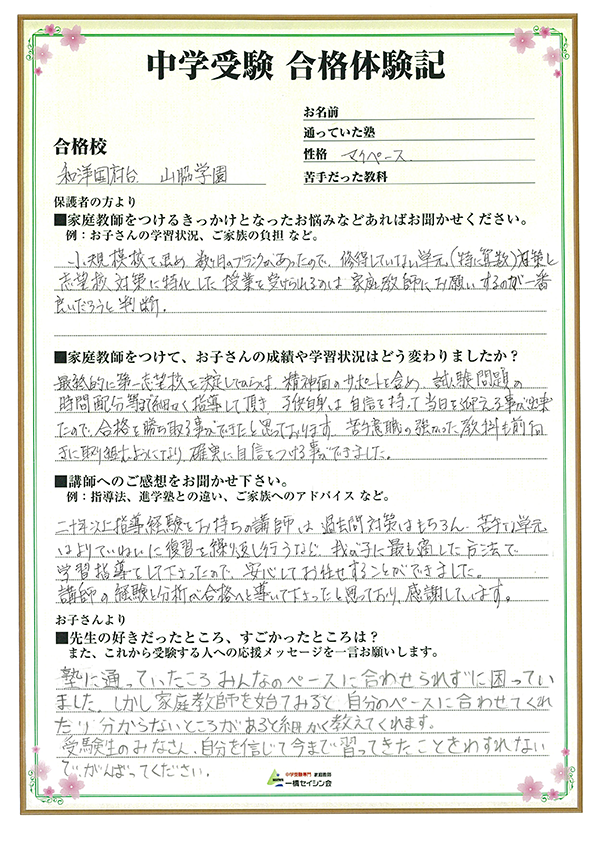 中学受験 合格体験記
お名前
通っていた塾
合格校
性格 マイペース
和洋国府台 山脇学園
苦手だった教科
保護者の方より
■家庭教師をつけるきっかけとなったお悩みなどあればお聞かせください。
例：お子さんの学習状況、ご家族の負担 など。
小規模校を含め、数ヶ月のブランクがあったので、修得していない単元(特に算数)対策と
志望校対策に特化した授業を受けられるのは家庭教師にお願いするのが一番
良いだろうと判断。
■家庭教師をつけて、お子さんの成績や学習状況はどう変わりましたか？
最終的に第一志望校を決定してからは、精神面のサポートも含め、試験問題の
時間配分等まで細かく指導して頂き、子供自身は自信を持って当日を迎える事が出来
たので、合格を勝ち取る事ができたと思っております。苦手意識の強かった教科も前向
きに取り組むようになり、確実に自信をつける事ができました。
■講師へのご感想をお聞かせ下さい。
例：指導法、進学塾との違い、ご家族へのアドバイス など。
二十年以上指導経験をお持ちの講師は、過去問対策はもちろん、苦手な単元
はよりていねいに復習を繰り返し行うなど、我が子に最も適した方法で
学習指導をして下さったので、安心してお任せすることができました。
講師の経験と分析が合格へと導いて下さったと思っており、感謝しています。
お子さんより
■先生の好きだったところ、すごかったところは？
また、これから受験する人への応援メッセージを一言お願いします。
塾に通っていたころみんなのペースに合わせられずに困ってい
ました。しかし家庭教師を始てみると、自分のペースに合わせてくれ
たり分からないところがあると細かく教えてくれます。
受験生のみなさん、自分を信じて今まで習ってきたことをわすれない
でがんばってください。
中学受験専門 家庭教師
一橋セイシン会